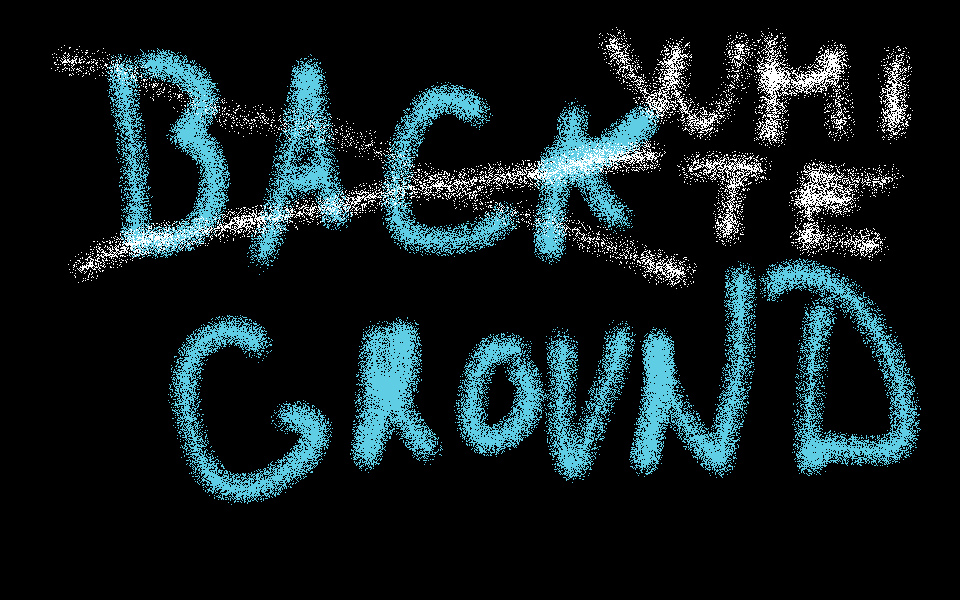 BACK WHI
TE
GROUND